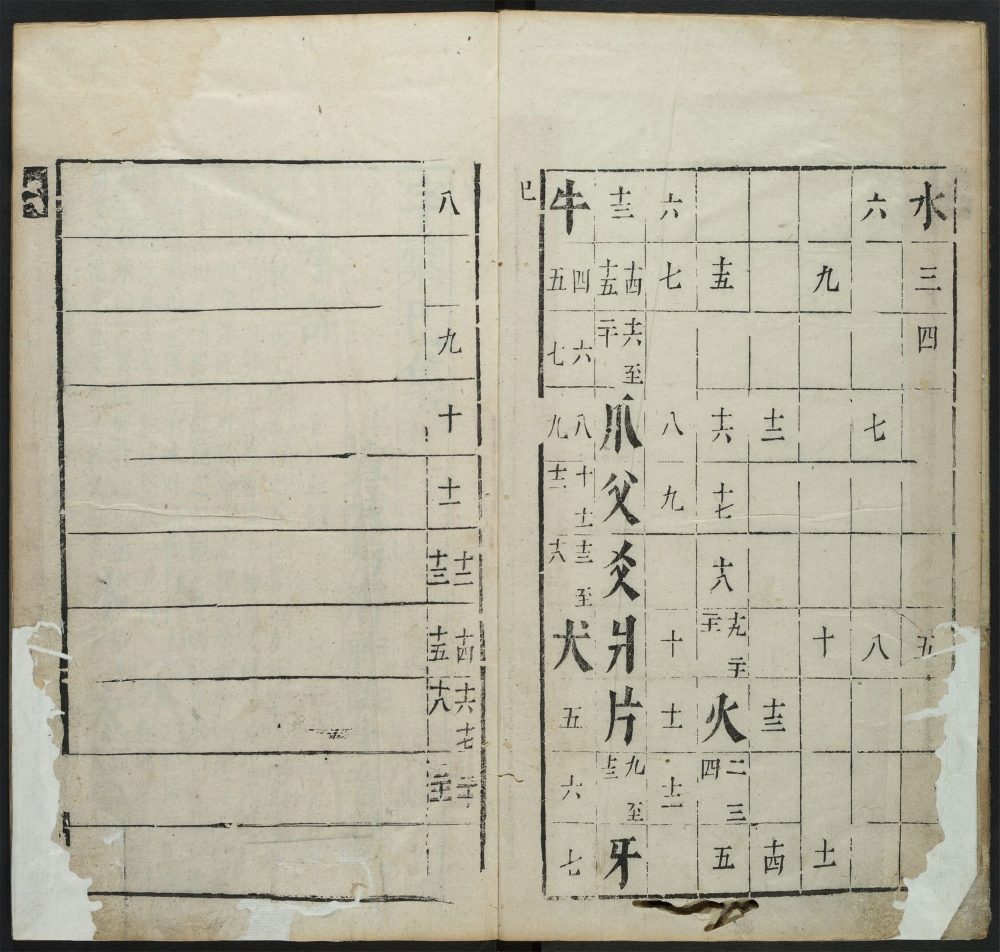 水三四五
六七八
九十十一
十二十三十四
十五十六十七十八十九二十二十一火二三四五
六七八九十十一十二
十三十四十五十六至二十爪父爻爿片九至十三牙
牛四五六七八九十十一十二十三至十八犬五六七
巳
八九十十一十二十三十四十五十六十七十八二十